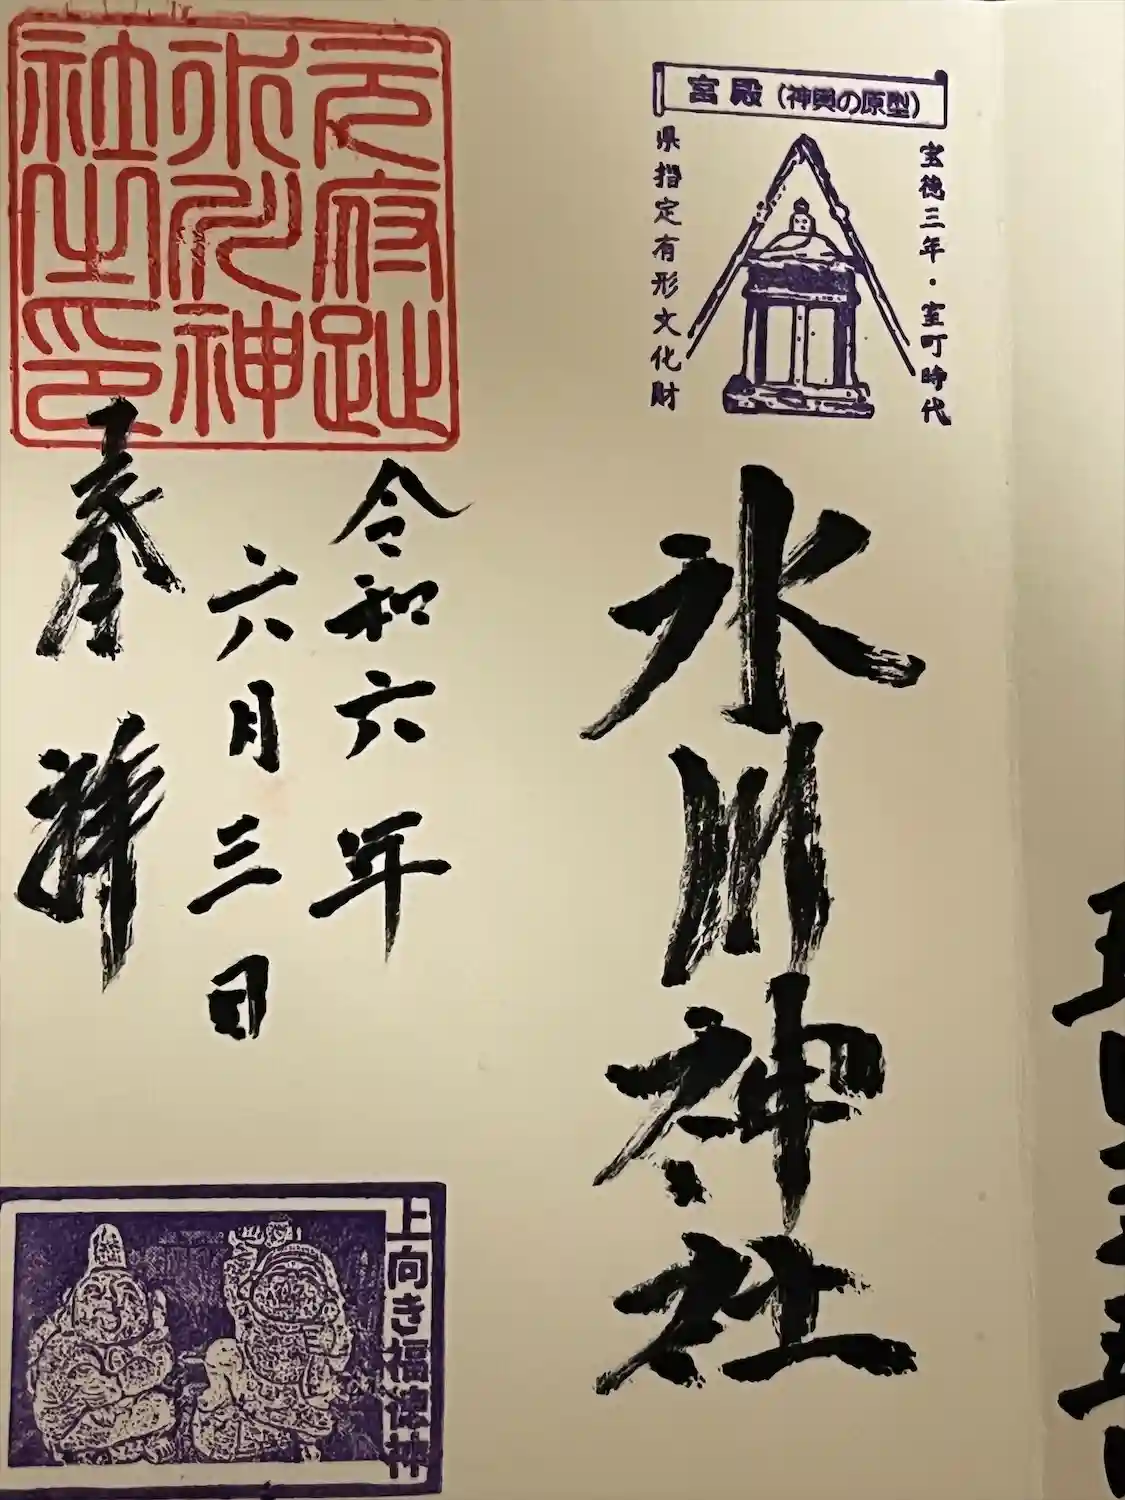 宮殿（神輿の原型）
宝徳三年・室町時代
県指定有形文化財
氷川神社
元府趾
氷川神
社之印
令和六年
六月三日
奉拝
上向き福徳神